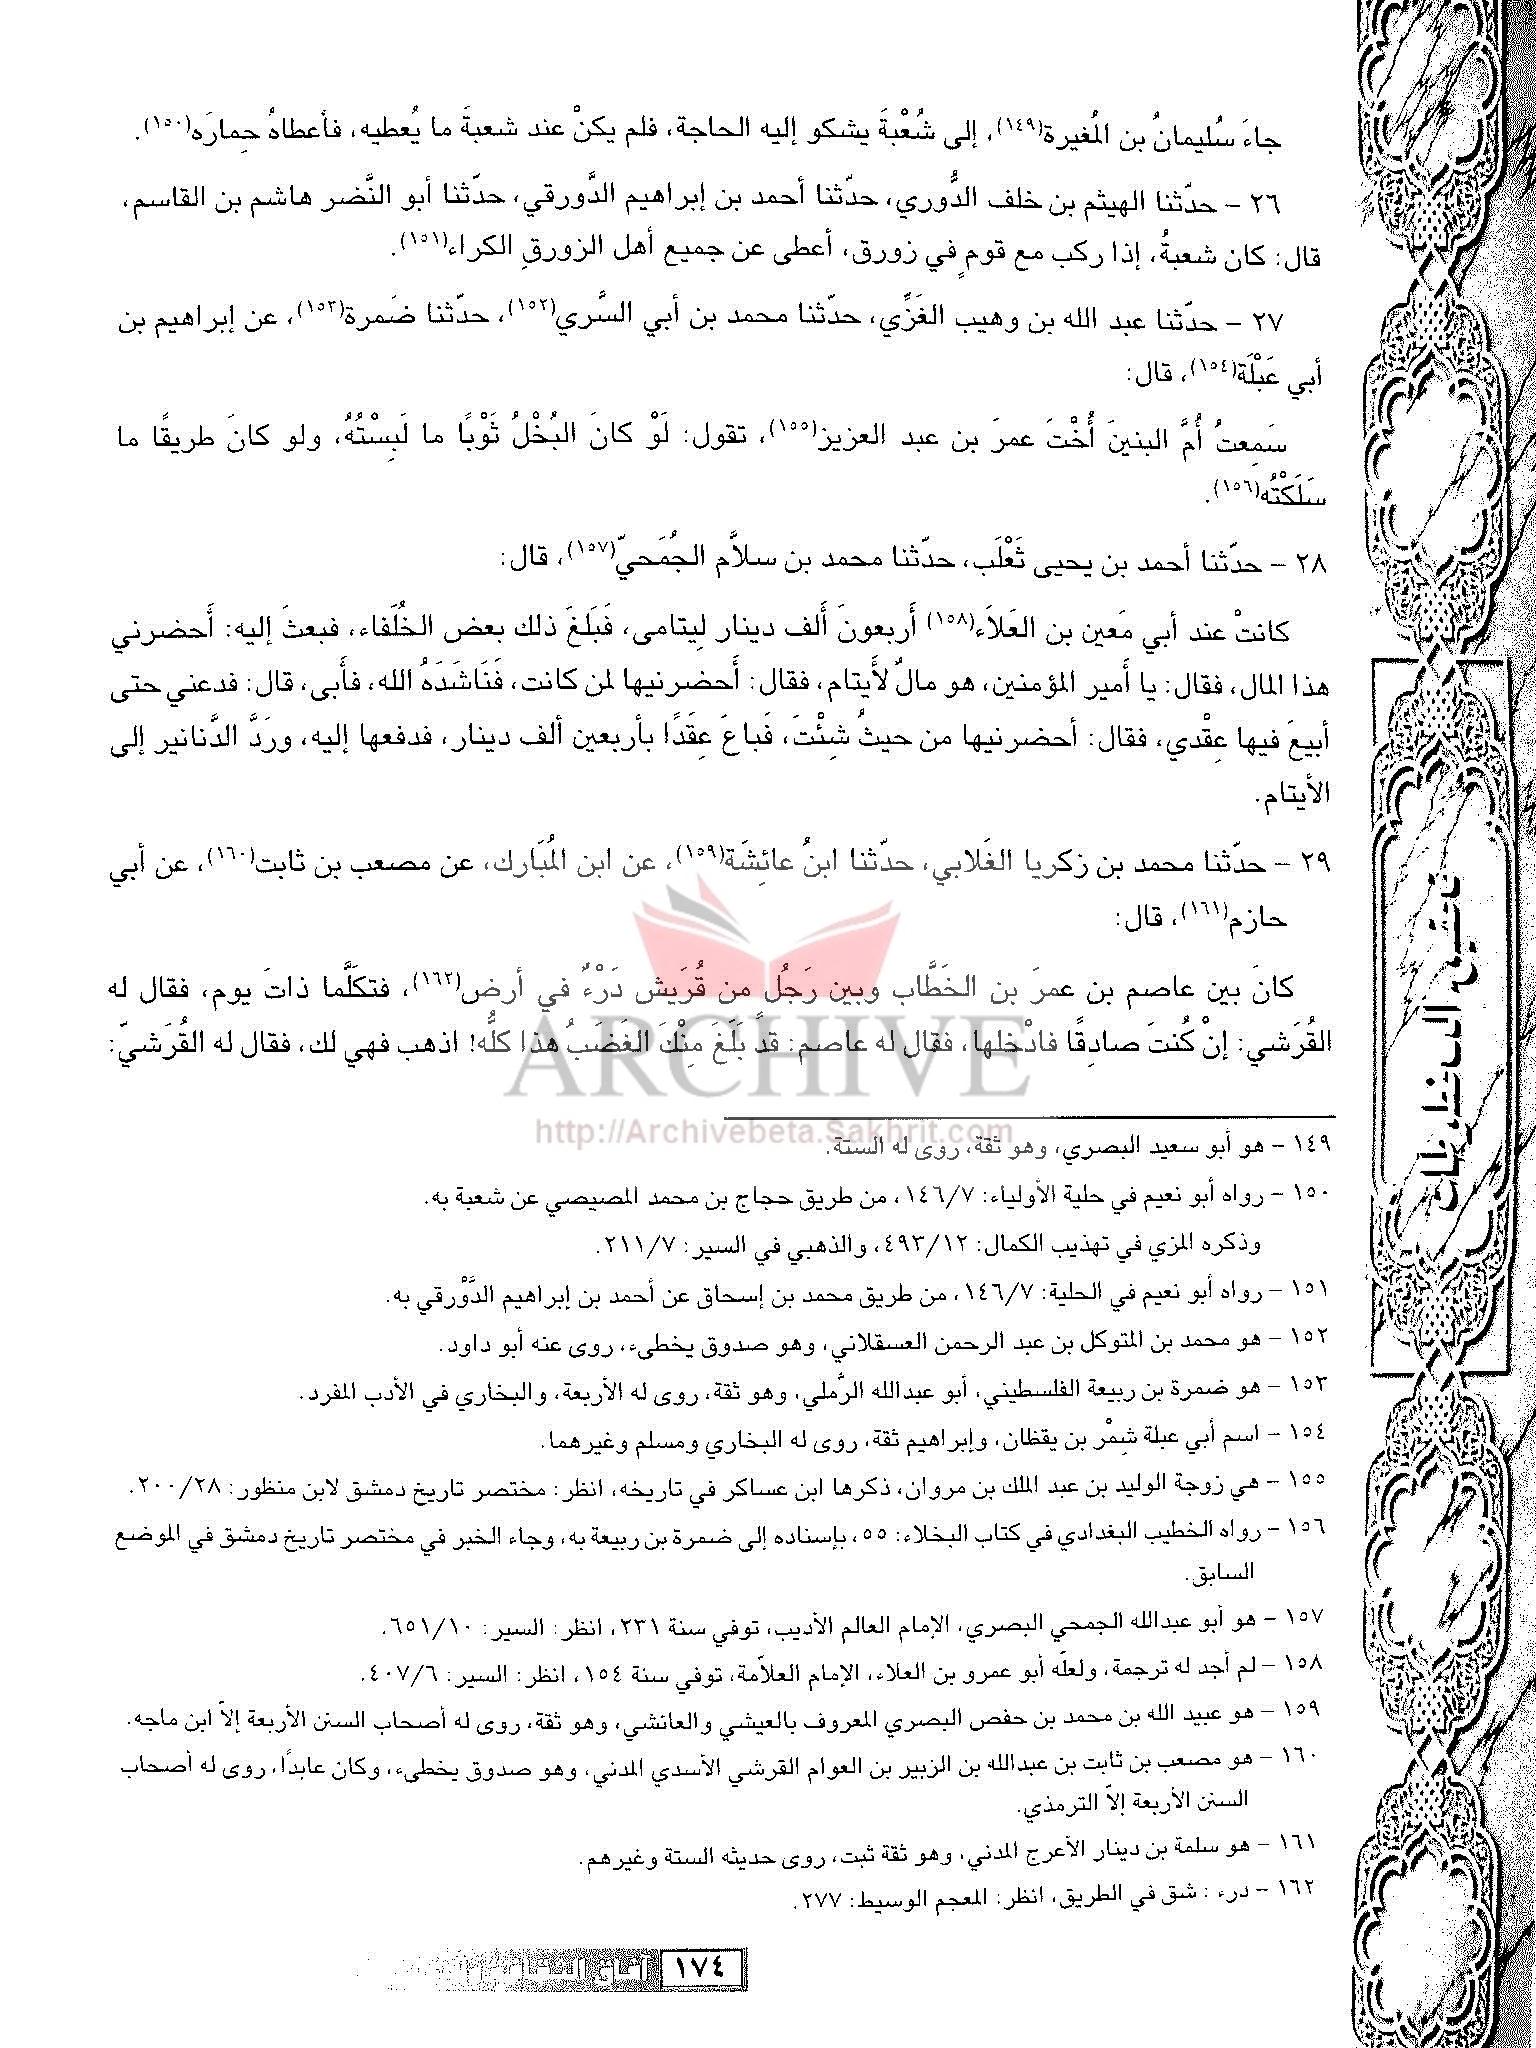 جاءَ سُليمانُ بن المُغيرة(١٤٩)، إلى شُعْبةَ يشكو إليه الحاجة، فلم يكنْ عند شعبةَ ما يُعطيه، فأعطاهُ حِمارَه(١٥٠).
٢٦ - حدّثنا الهيثم بن خلف الدُّوري، حدّثنا أحمد بن إبراهيم الدَّورقي، حدّثنا أبو النَّضر هاشم بن القاسم،
قال: كان شعبةُ، إذا ركب مع قومٍ في زورق، أعطى عن جميع أهل الزورقِ الكراء(١٥١).
٢٧ - حدّثنا عبد الله بن وهيب الغَزِّي، حدّثنا محمد بن أبي السَّري(١٥٢)، حدّثنا ضَمرة(١٥٣)، عن إبراهيم بن
أبي عَبْلَة(١٥٤)، قال:
سَمِعتُ أُمَّ البنينَ أُخْتَ عمرَ بن عبد العزيز(١٥٥)، تقول: لَوْ كانَ البُخْلُ ثَوْبًا ما لَبِسْتُهُ، ولو كانَ طريقًا ما
سَلَكْتُه(١٥٦).
٢٨ - حدّثنا أحمد بن يحيى ثَعْلَب، حدّثنا محمد بن سلاَّم الجُمَحيّ(١٥٧)، قال:
كانتْ عند أبي مَعين بن العَلاَء(١٥٨) أَربعونَ أَلف دينار لِيتامى، فَبَلغَ ذلك بعض الخُلَفاء، فبعثَ إليه: أَحضرني
هذا المال، فقال: يا أَمير المؤمنين، هو مالٌ لأَيتام، فقال: أَحضرنيها لمن كانت، فَنَاشَدَهُ الله، فأَبى، قال: فدعني حتى
أبيعَ فيها عِقْدي، فقال: أحضرنيها من حيثُ شِئْتَ، فَباعَ عِقَدًا بأربعين ألف دينار، فدفعها إليه، ورَدَّ الدَّنانير إلى
الأيتام.
٢٩ - حدّثنا محمد بن زكريا الغَلابي، حدّثنا ابنُ عائِشَة(١٥٩)، عن ابن المُبَارك، عن مصعب بن ثابت(١٦٠)، عن أبي
حازم(١٦١)، قال:
كانَ بين عاصم بن عمرَ بن الخَطَّاب وبين رَجُل من قُرَيش دَرْءٌ في أرض(١٦٢)، فتكَلَّما ذاتَ يوم، فقال له
القُرَشي: إنْ كُنتَ صادِقًا فادْخلها، فقال له عاصم: قدْ بَلَغَ مِنْكَ الغَضَبُ هذا كلُّه! اذهب فهي لك، فقال له القُرَشيّ:
ARCHIVE
http://Archivebeta.Sakhrit.com
١٤٩ - هو أبو سعيد البصري، وهو ثقة، روى له الستة.
١٥٠ - رواه أبو نعيم في حلية الأولياء: ١٤٦/٧، من طريق حجاج بن محمد المصيصي عن شعبة به.
وذكره المزي في تهذيب الكمال: ٤٩٣/١٢، والذهبي في السير: ٢١١/٧.
١٥١ - رواه أبو نعيم في الحلية: ١٤٦/٧، من طريق محمد بن إسحاق عن أحمد بن إبراهيم الدَّوْرقي به.
١٥٢ - هو محمد بن المتوكل بن عبد الرحمن العسقلاني، وهو صدوق يخطىء، روى عنه أبو داود.
١٥٣ - هو ضمرة بن ربيعة الفلسطيني، أبو عبدالله الرَّملي، وهو ثقة، روى له الأربعة، والبخاري في الأدب المفرد.
١٥٤ - اسم أبي عبلة شِمْر بن يقظان، وإبراهيم ثقة، روى له البخاري ومسلم وغيرهما.
١٥٥ - هي زوجة الوليد بن عبد الملك بن مروان، ذكرها ابن عساكر في تاريخه، انظر: مختصر تاريخ دمشق لابن منظور: ٢٠٠/٢٨.
١٥٦ - رواه الخطيب البغدادي في كتاب البخلاء: ٥٥، بإسناده إلى ضمرة بن ربيعة به، وجاء الخبر في مختصر تاريخ دمشق في الموضع
السابق.
١٥٧ - هو أبو عبدالله الجمحي البصري، الإمام العالم الأديب، توفي سنة ٢٣١، انظر: السير: ٦٥١/١٠.
١٥٨ - لم أجد له ترجمة، ولعلّه أبو عمرو بن العلاء، الإمام العلاّمة، توفي سنة ١٥٤، انظر: السير: ٤٠٧/٦.
١٥٩ - هو عبيد الله بن محمد بن حفص البصري المعروف بالعيشي والعائشي، وهو ثقة، روى له أصحاب السنن الأربعة إلاّ ابن ماجه.
١٦٠ - هو مصعب بن ثابت بن عبدالله بن الزبير بن العوام القرشي الأسدي المدني، وهو صدوق يخطىء، وكان عابدًا، روى له أصحاب
السنن الأربعة إلاّ الترمذي.
١٦١ - هو سلمة بن دينار الأعرج المدني، وهو ثقة ثبت، روى حديثه الستة وغيرهم.
١٦٢ - درء : شق في الطريق، انظر: المعجم الوسيط: ٢٧٧.
١٧٤
آفاق الثقافة
تحقيق المخطوطات